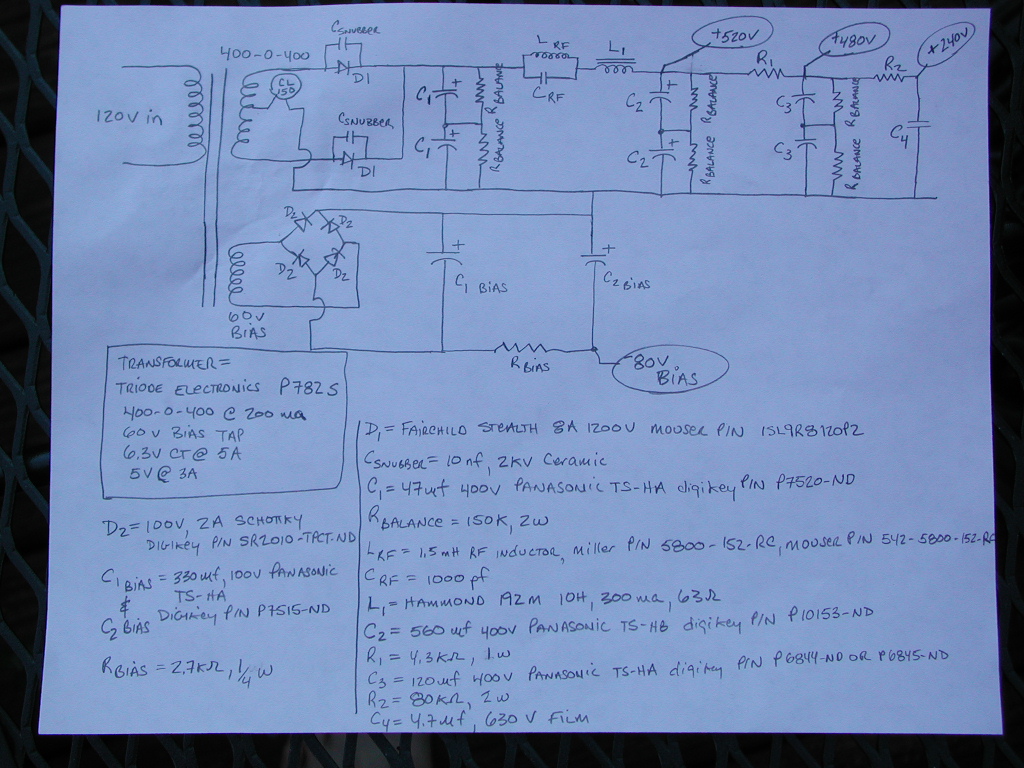 CSNUBBER
400-0-400
D1
CL 150
120V in
CSNUBBER
D1
C1
+
RBALANCE
C1
+
RBALANCE
LRF
CRF
L1
+520V
C2
+
RBALANCE
C2
+
RBALANCE
R1
+480V
C3
RBALANCE
C3
RBALANCE
R2
+240V
C4
D2
D2
D2
D2
60V
BIAS
+
C1 BIAS
+
C2 BIAS
RBIAS
-80V
BIAS
TRANSFORMER=
TRIODE ELECTRONICS P782S
400-0-400 @ 200 ma
60V BIAS TAP
6.3V CT @ 5A
5V @ 3A
D2=100V, 2A SCHOTKY
DIGIKEY P/N SR2010-TPCT-ND
C1 BIAS = 330uf, 100V PANASONIC
& TS-HA
C2 BIAS DIGIKEY P/N P7515-ND
RBIAS = 2.7KΩ, 1/4 W
D1= FAIRCHILD STEALTH 8A 1200V MOUSER P/N ISL9R8120P2
CSNUBBER= 10nf, 2KV Ceramic
C1 = 47uf 400V PANASONIC TS-HA digikey P/N P7520-ND
RBALANCE = 150K, 2W
LRF = 1.5mH RF inductor, miller P/N 5800-152-RC, MOUSER P/N 542-5800-152-RC
CRF = 1000pf
L1= HAMMOND 192M 10H, 300ma, 63Ω
C2= 560uf 400V PANASONIC TS-HB digikey P/N P10153-ND
R1 = 4.3KΩ, 1W
C3 = 120uf 400V PANASONIC TS-HA digikey P/N P6844-ND OR P6845-ND
R2= 80KΩ, 2W
C4= 4.7uf, 630 V FILM